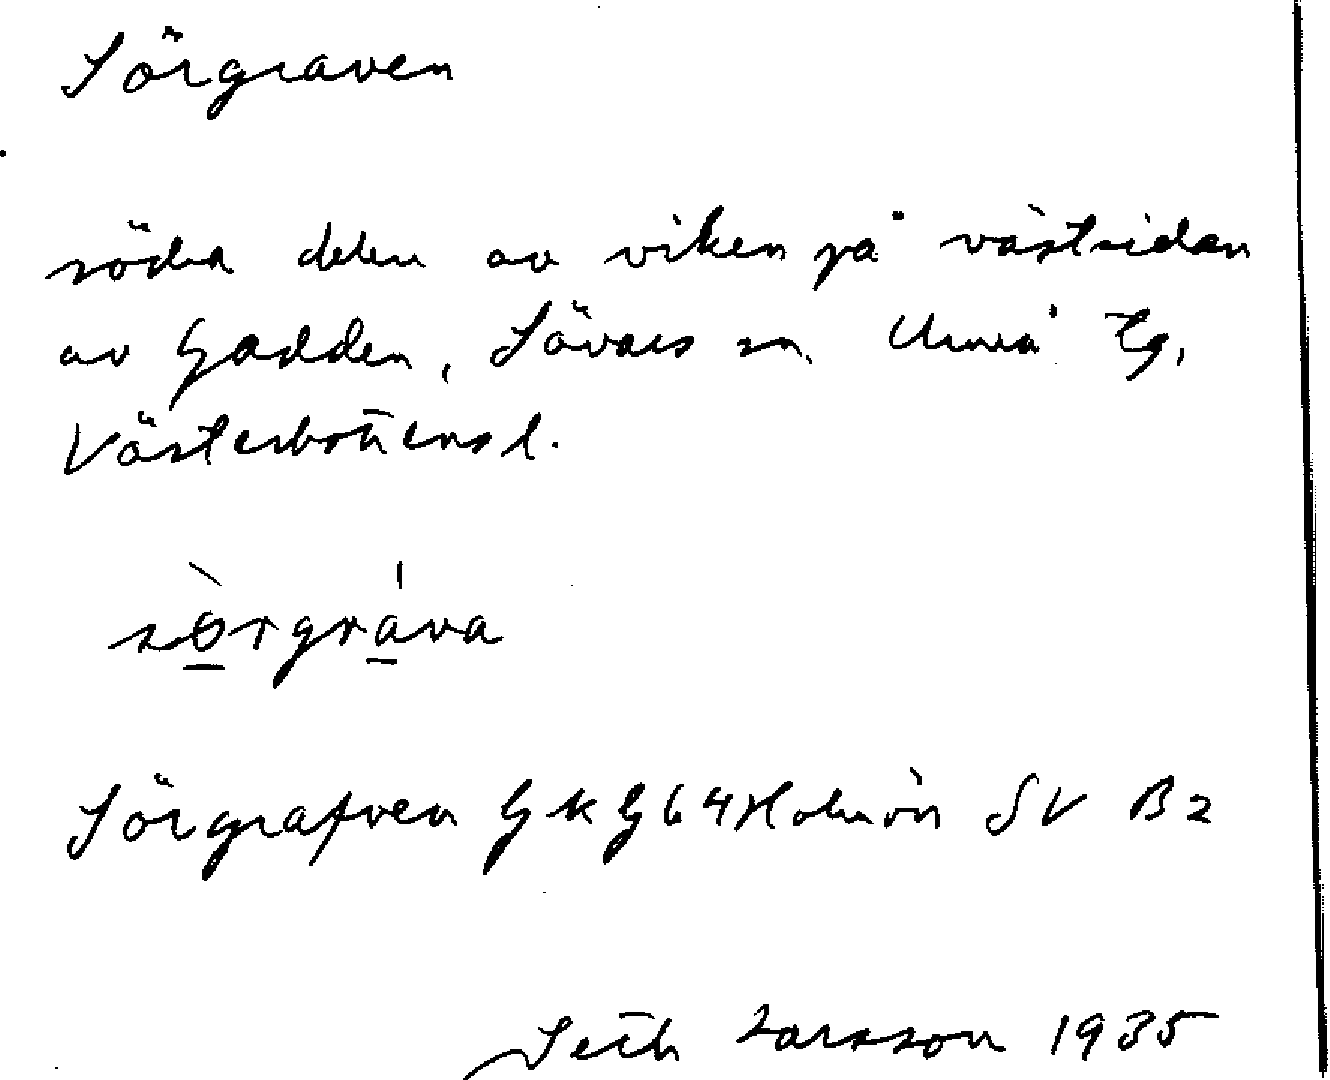 Sörgraven
södra delen av viken på västsidan
av Gadden, Sävars sn. Umeå Tg,
Västerbottens l.
sørgráva
Sörgrafven GK G64 Holmön SV B2
Seth Larsson 1935